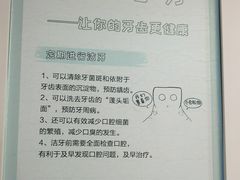 ——让你的牙齿更健康
定期进行洁牙
1、可以清除牙菌斑和依附于
牙齿表面的沉淀物，预防龋齿。
2、可以洗去牙齿的“蓬头垢
面”，预防牙周病。
3、还可以有效减少口腔细菌
的繁殖，减少口臭的发生。
4、洁牙前需要全面检查口腔，
有利于及早发现口腔问题，及早治疗。